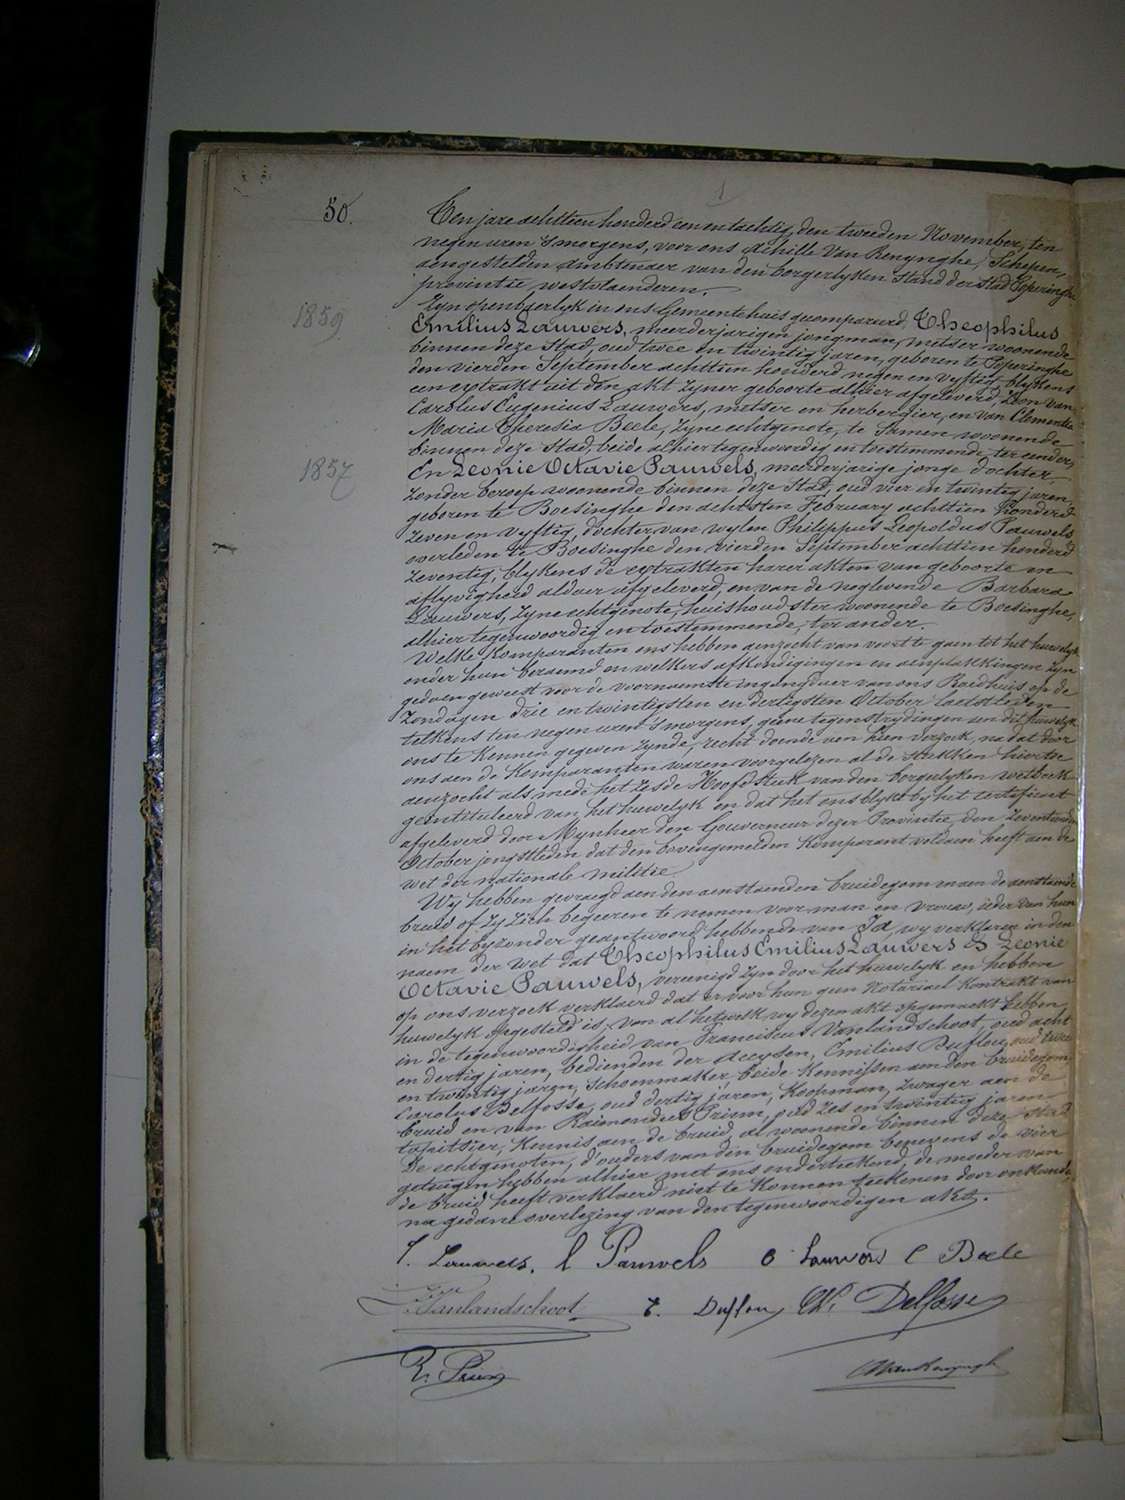 50.
Ten jare achttien honderd een en tachtig, den tweeden November, ten
negen uren 's morgens, voor ons Achille Van Renynghe, Schepen,
aengestelden Ambtenaer van den borgerlyken Stand der Stad Poperinghe
provintie Westvlaenderen.
Zyn openbaerlyk in ons Gemeentehuis gecompareerd, Theophilus
1859
Emilius Lauwers, meerderjarigen jongman, metser woonende
binnen deze Stad, oud twee en twintig jaren, geboren te Poperinghe
den vierden September achttien honderd negen en vyftig, blykens
een extrakt uit den akt zyner geboorte alhier afgeleverd, Zoon van
Carolus Eugenius Lauwers, metser en herbergier, en van Clementia
Maria Theresia Beele, zyne echtgenote, te samen woonende
binnen deze Stad, beide alhier tegenwoordig en toestemmende, ter eender,
1857
En Leonie Octavie Pauwels, meerderjarige jonge dochter,
zonder beroep woonende binnen deze Stad, oud vier en twintig jaren,
geboren te Boesinghe den achtsten February achttien honderd
zeven en vyftig, dochter van wylen Philippus Leopoldus Pauwels
overleden te Boesinghe den vierden September achttien honderd
zeventig, blykens de extrakten harer akten van geboorte en
aflyvigheid aldaer afgeleverd, en van de noglevende Barbara
Lauwers, zyne echtgenote, huishoudster woonende te Boesinghe,
alhier tegenwoordig en toestemmende, ter ander.
Welke Komparanten ons hebben aenzocht van voort te gaen tot het huwelyk
onder hun beraemd en welkers afkondigingen en aenplakkingen zyn
gedaen geweest voor de voornaemste ingangdeur van ons Raedhuis op de
Zondagen drie en twintigsten en dertigsten October laetstleden
telkens ten negen uren 's morgens, geene tegenstrydingen aen dit huwelyk
ons te kennen gegeven zynde, recht doende aen hun verzoek, na dat door
ons aen de Komparanten waren voorgelezen al de stukken hiertoe
aenzocht als mede het zesde Hoofdstuk van den borgerlyken wetboek
geintituleerd van het huwelyk en dat het ons blykt by het certifikaat
afgeleverd door Mynheer den Gouverneur dezer Provintie, den zeventienden
October jongstleden dat den bovengemelden Komparant voldaen heeft aen de
wet der nationale militie.
Wy hebben gevraegd aen den aenstaenden bruidegom en aen de aenstaende
bruid of zy zich begeeren te nemen voor man en vrouw, ieder van hun
in het byzonder geantwoord hebbende van Ja, wy verklaren in den
naem der wet dat Theophilus Emilius Lauwers & Leonie
Octavie Pauwels, vereenigd zyn door het huwelyk en hebben
op ons verzoek verklaerd dat er voor hun geen Notariael Kontrakt van
huwelyk opgesteld is, van al hetwelk wy dezen akt opgemaekt hebben
in de tegenwoordigheid van Franciscus Vanlandschoot, oud acht
en dertig jaren, bedienden der Accysen, Emilius Duflou, oud twee
en twintig jaren, schoenmaker beide Kennissen aen den bruidegom,
Carolus Delfosse, oud dertig jaren, Koopman, zwager aen de
bruid en van Raimondus Priem, oud zes en twintig jaren
tapitsier, Kennis aen de bruid, al woonende binnen deze stad.
De echtgenoten, d'ouders van den bruidegom benevens de vier
getuigen hebben alhier met ons onderteekend, de moeder van
de bruid heeft verklaerd niet te konnen teekenen door onkunde,
na gedane overlezing van den tegenwoordigen akt.
T. Lauwers. l Pauwels C Lauwers C Beele
Vanlandschoot E. Duflou Ch. Delfosse
R. Priem AVanRenynghe